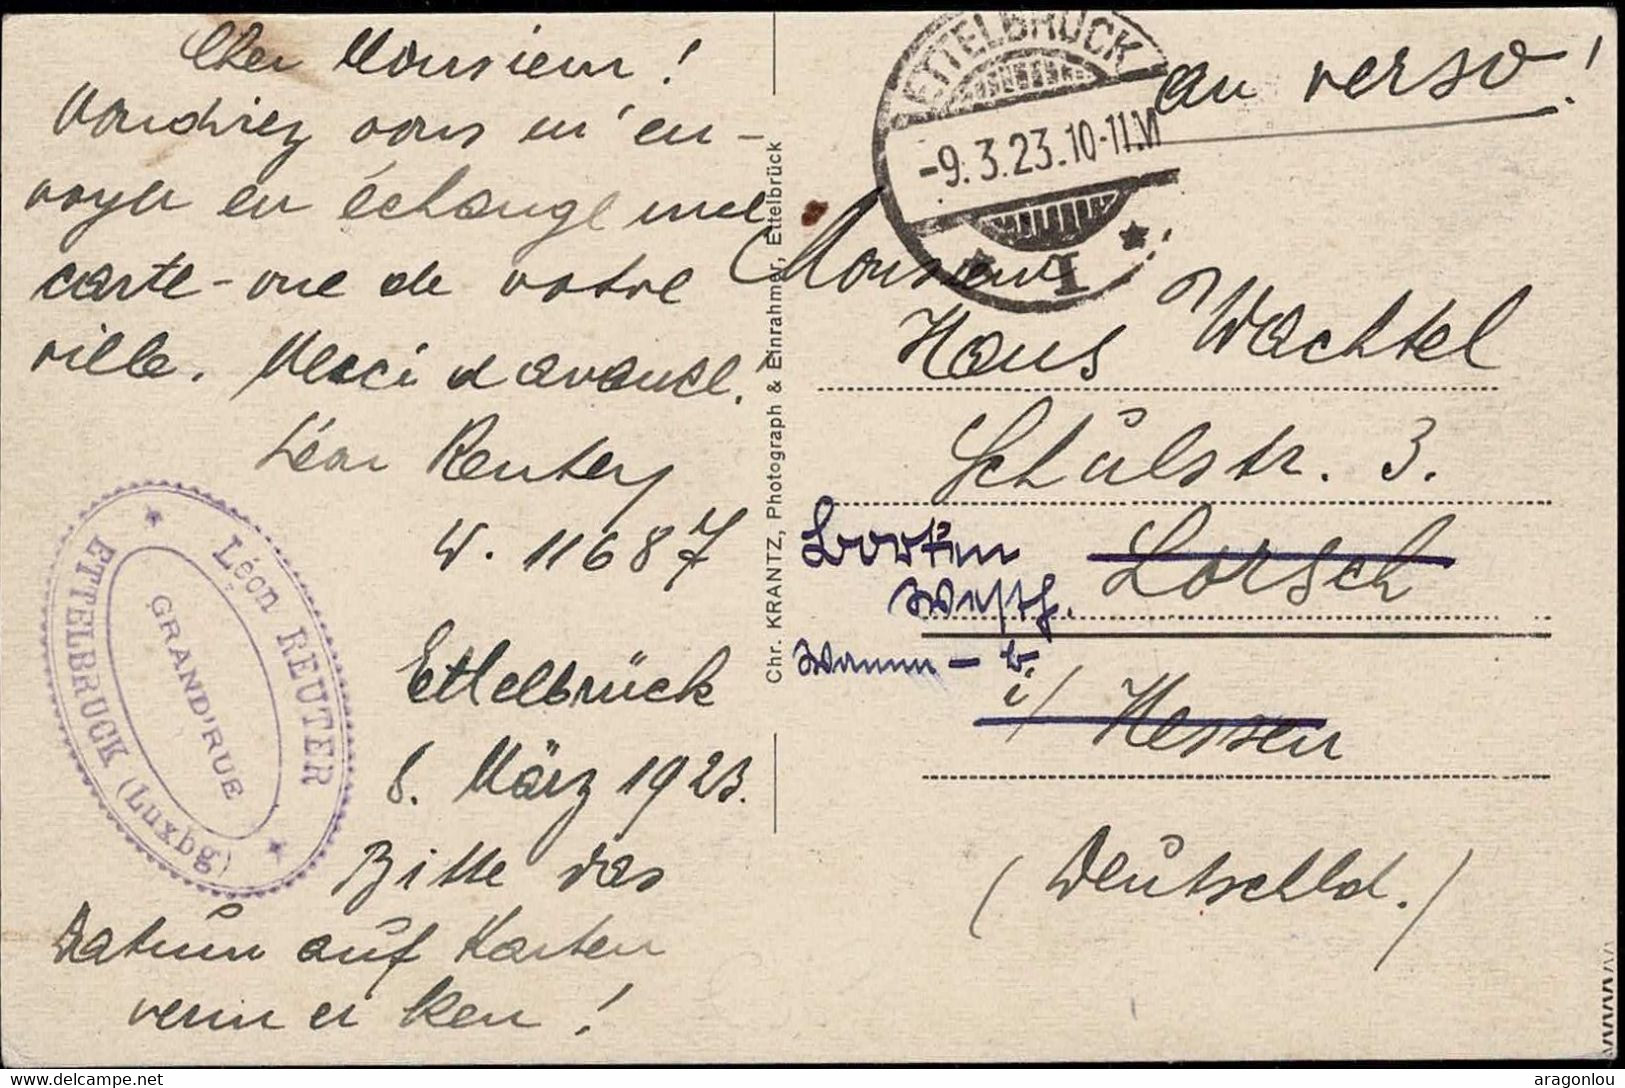 Cher Monsieur !
Voudriez vous m'en-
voyer en échange une
carte-vue de votre
ville. Merci d'avance.
Léon Reuter
W. 11687
Ettelbrück
8. März 1923.
Bitte das
Datum auf Karten
Léon REUTER
GRAND'RUE
ETTELBRUCK (Luxbg)
Chr. KRANTZ, Photograph & Einrahmer, Ettelbrück
ETTELBRÜCK
-9.3.23.10-11.V
I
au verso !
Monsieur
Hans Wachtel
Schulstr. 3.
Borken
Lorsch
Westf.
i/ Hessen
(Deutschld.)
aragonlou